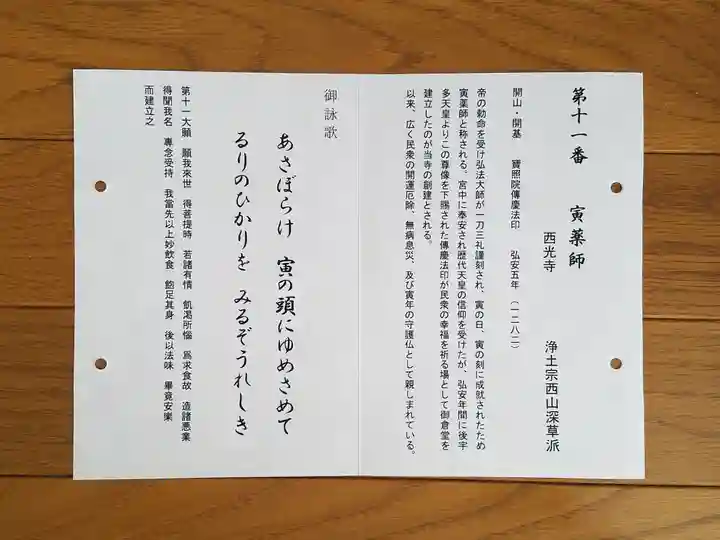 第十一番　寅薬師
西光寺　浄土宗西山深草派
開山・開基　寶照院傳慶法印　弘安五年（一二八二）
帝の勅命を受け弘法大師が一刀三礼謹刻され、寅の日、寅の刻に成就されたため
寅薬師と称される。宮中に奉安され歴代天皇の信仰を受けたが、弘安年間に後宇
多天皇よりこの尊像を下賜された傳慶法印が民衆の幸福を祈る場として御倉堂を
建立したのが当寺の創建とされる。
以来、広く民衆の開運厄除、無病息災、及び寅年の守護仏として親しまれている。
御詠歌
あさぼらけ　寅の頭にゆめさめて
るりのひかりを　みるぞうれしき
第十一大願　願我來世　得菩提時　若諸有情　飢渇所惱　爲求食故　造諸悪業
得聞我名　專念受持　我當先以上妙飲食　飽足其身　後以法味　畢竟安樂
而建立之